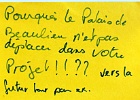 Pourquoi le Palais de
Beaulieu n'est pas
déplacer dans votre
Projet !!?? vers la